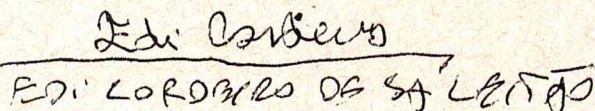 Edi Cordeiro
EDI CORDEIRO DE SÁ LEITÃO